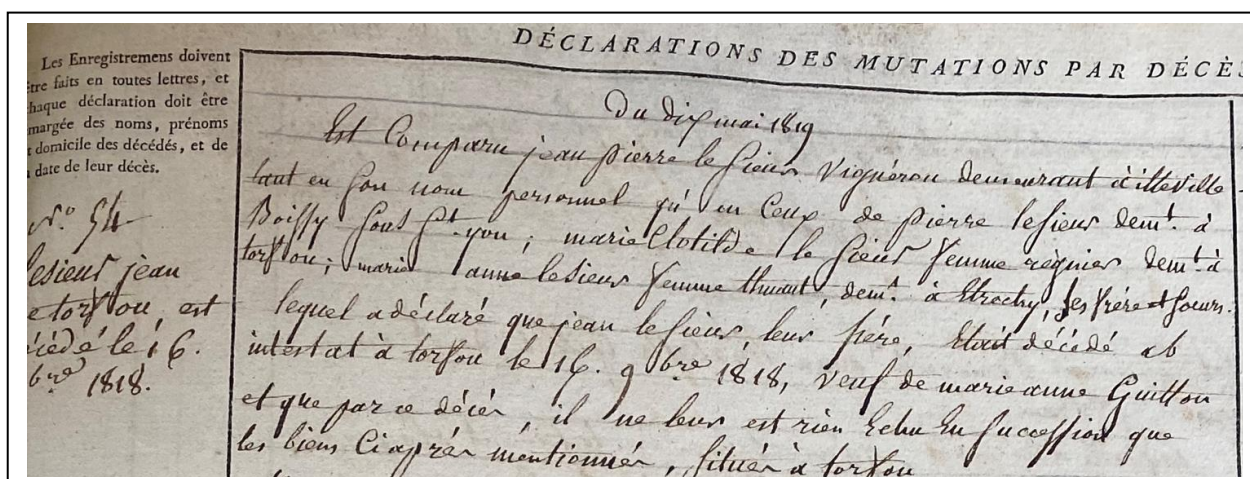 DÉCLARATIONS DES MUTATIONS PAR DÉCÈS
Les Enregistremens doivent
être faits en toutes lettres, et
chaque déclaration doit être
margée des noms, prénoms
domicile des décédés, et de
date de leur décès.
N.º 54
lesieur jean
e torfou, est
cédé le 16.
bre 1818.
Du dix mai 1819
Est Comparu jean pierre le sieur Vignéron demeurant à itteville
tant en son nom personnel qu'en Ceux de pierre lesieur demt. à
Boissy Sous St. yon; marie Clotilde le sieur femme régnier demt. à
torfou; marie anne lesieur femme thuant, demt. à Etrechy, ses frère et soeurs.
lequel a déclaré que jean lesieur, leur frère, Etait décédé ab
intestat à torfou le 16. 9bre 1818, veuf de marie anne Guitton
et que par ce décès, il ne leur est rien Echu En succession que
les biens Ciaprès mentionnés, situés à torfou